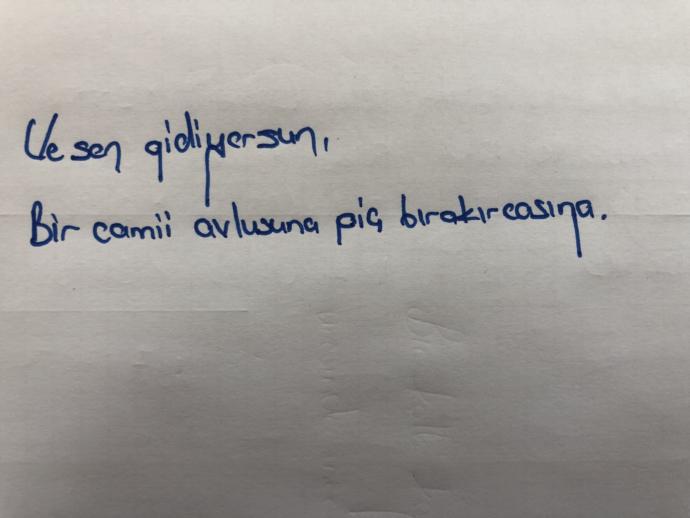 Ve sen gidiyorsun,
Bir camii avlusuna piç bırakırcasına.